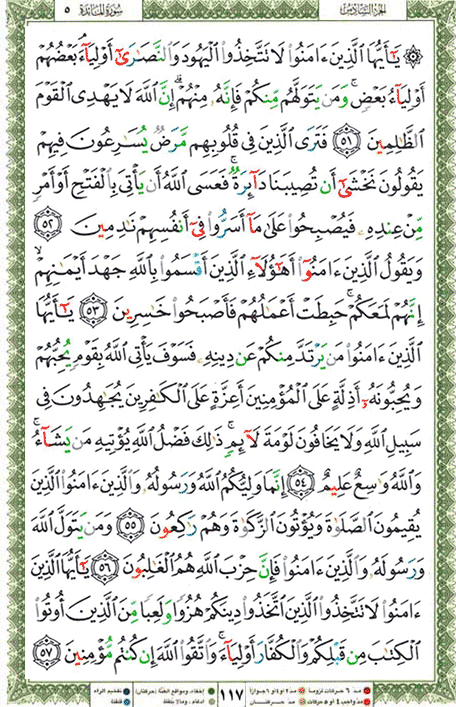 الجزء السادس سورة المائدة ٥
۞ يَٰٓأَيُّهَا ٱلَّذِينَ ءَامَنُوا۟ لَا تَتَّخِذُوا۟ ٱلْيَهُودَ وَٱلنَّصَٰرَىٰٓ أَوْلِيَآءَ ۘ بَعْضُهُمْ
أَوْلِيَآءُ بَعْضٍ ۚ وَمَن يَتَوَلَّهُم مِّنكُمْ فَإِنَّهُۥ مِنْهُمْ ۗ إِنَّ ٱللَّهَ لَا يَهْدِى ٱلْقَوْمَ
ٱلظَّٰلِمِينَ ٥١ فَتَرَى ٱلَّذِينَ فِى قُلُوبِهِم مَّرَضٌ يُسَٰرِعُونَ فِيهِمْ
يَقُولُونَ نَخْشَىٰٓ أَن تُصِيبَنَا دَآئِرَةٌ ۚ فَعَسَى ٱللَّهُ أَن يَأْتِىَ بِٱلْفَتْحِ أَوْ أَمْرٍ
مِّنْ عِندِهِۦ فَيُصْبِحُوا۟ عَلَىٰ مَآ أَسَرُّوا۟ فِىٓ أَنفُسِهِمْ نَٰدِمِينَ ٥٢
وَيَقُولُ ٱلَّذِينَ ءَامَنُوٓا۟ أَهَٰٓؤُلَآءِ ٱلَّذِينَ أَقْسَمُوا۟ بِٱللَّهِ جَهْدَ أَيْمَٰنِهِمْ ۙ
إِنَّهُمْ لَمَعَكُمْ ۚ حَبِطَتْ أَعْمَٰلُهُمْ فَأَصْبَحُوا۟ خَٰسِرِينَ ٥٣ يَٰٓأَيُّهَا
ٱلَّذِينَ ءَامَنُوا۟ مَن يَرْتَدَّ مِنكُمْ عَن دِينِهِۦ فَسَوْفَ يَأْتِى ٱللَّهُ بِقَوْمٍ يُحِبُّهُمْ
وَيُحِبُّونَهُۥٓ أَذِلَّةٍ عَلَى ٱلْمُؤْمِنِينَ أَعِزَّةٍ عَلَى ٱلْكَٰفِرِينَ يُجَٰهِدُونَ فِى
سَبِيلِ ٱللَّهِ وَلَا يَخَافُونَ لَوْمَةَ لَآئِمٍ ۚ ذَٰلِكَ فَضْلُ ٱللَّهِ يُؤْتِيهِ مَن يَشَآءُ ۚ
وَٱللَّهُ وَٰسِعٌ عَلِيمٌ ٥٤ إِنَّمَا وَلِيُّكُمُ ٱللَّهُ وَرَسُولُهُۥ وَٱلَّذِينَ ءَامَنُوا۟ ٱلَّذِينَ
يُقِيمُونَ ٱلصَّلَوٰةَ وَيُؤْتُونَ ٱلزَّكَوٰةَ وَهُمْ رَٰكِعُونَ ٥٥ وَمَن يَتَوَلَّ ٱللَّهَ
وَرَسُولَهُۥ وَٱلَّذِينَ ءَامَنُوا۟ فَإِنَّ حِزْبَ ٱللَّهِ هُمُ ٱلْغَٰلِبُونَ ٥٦ يَٰٓأَيُّهَا ٱلَّذِينَ
ءَامَنُوا۟ لَا تَتَّخِذُوا۟ ٱلَّذِينَ ٱتَّخَذُوا۟ دِينَكُمْ هُزُوًا وَلَعِبًا مِّنَ ٱلَّذِينَ أُوتُوا۟
ٱلْكِتَٰبَ مِن قَبْلِكُمْ وَٱلْكُفَّارَ أَوْلِيَآءَ ۚ وَٱتَّقُوا۟ ٱللَّهَ إِن كُنتُم مُّؤْمِنِينَ ٥٧
١١٧